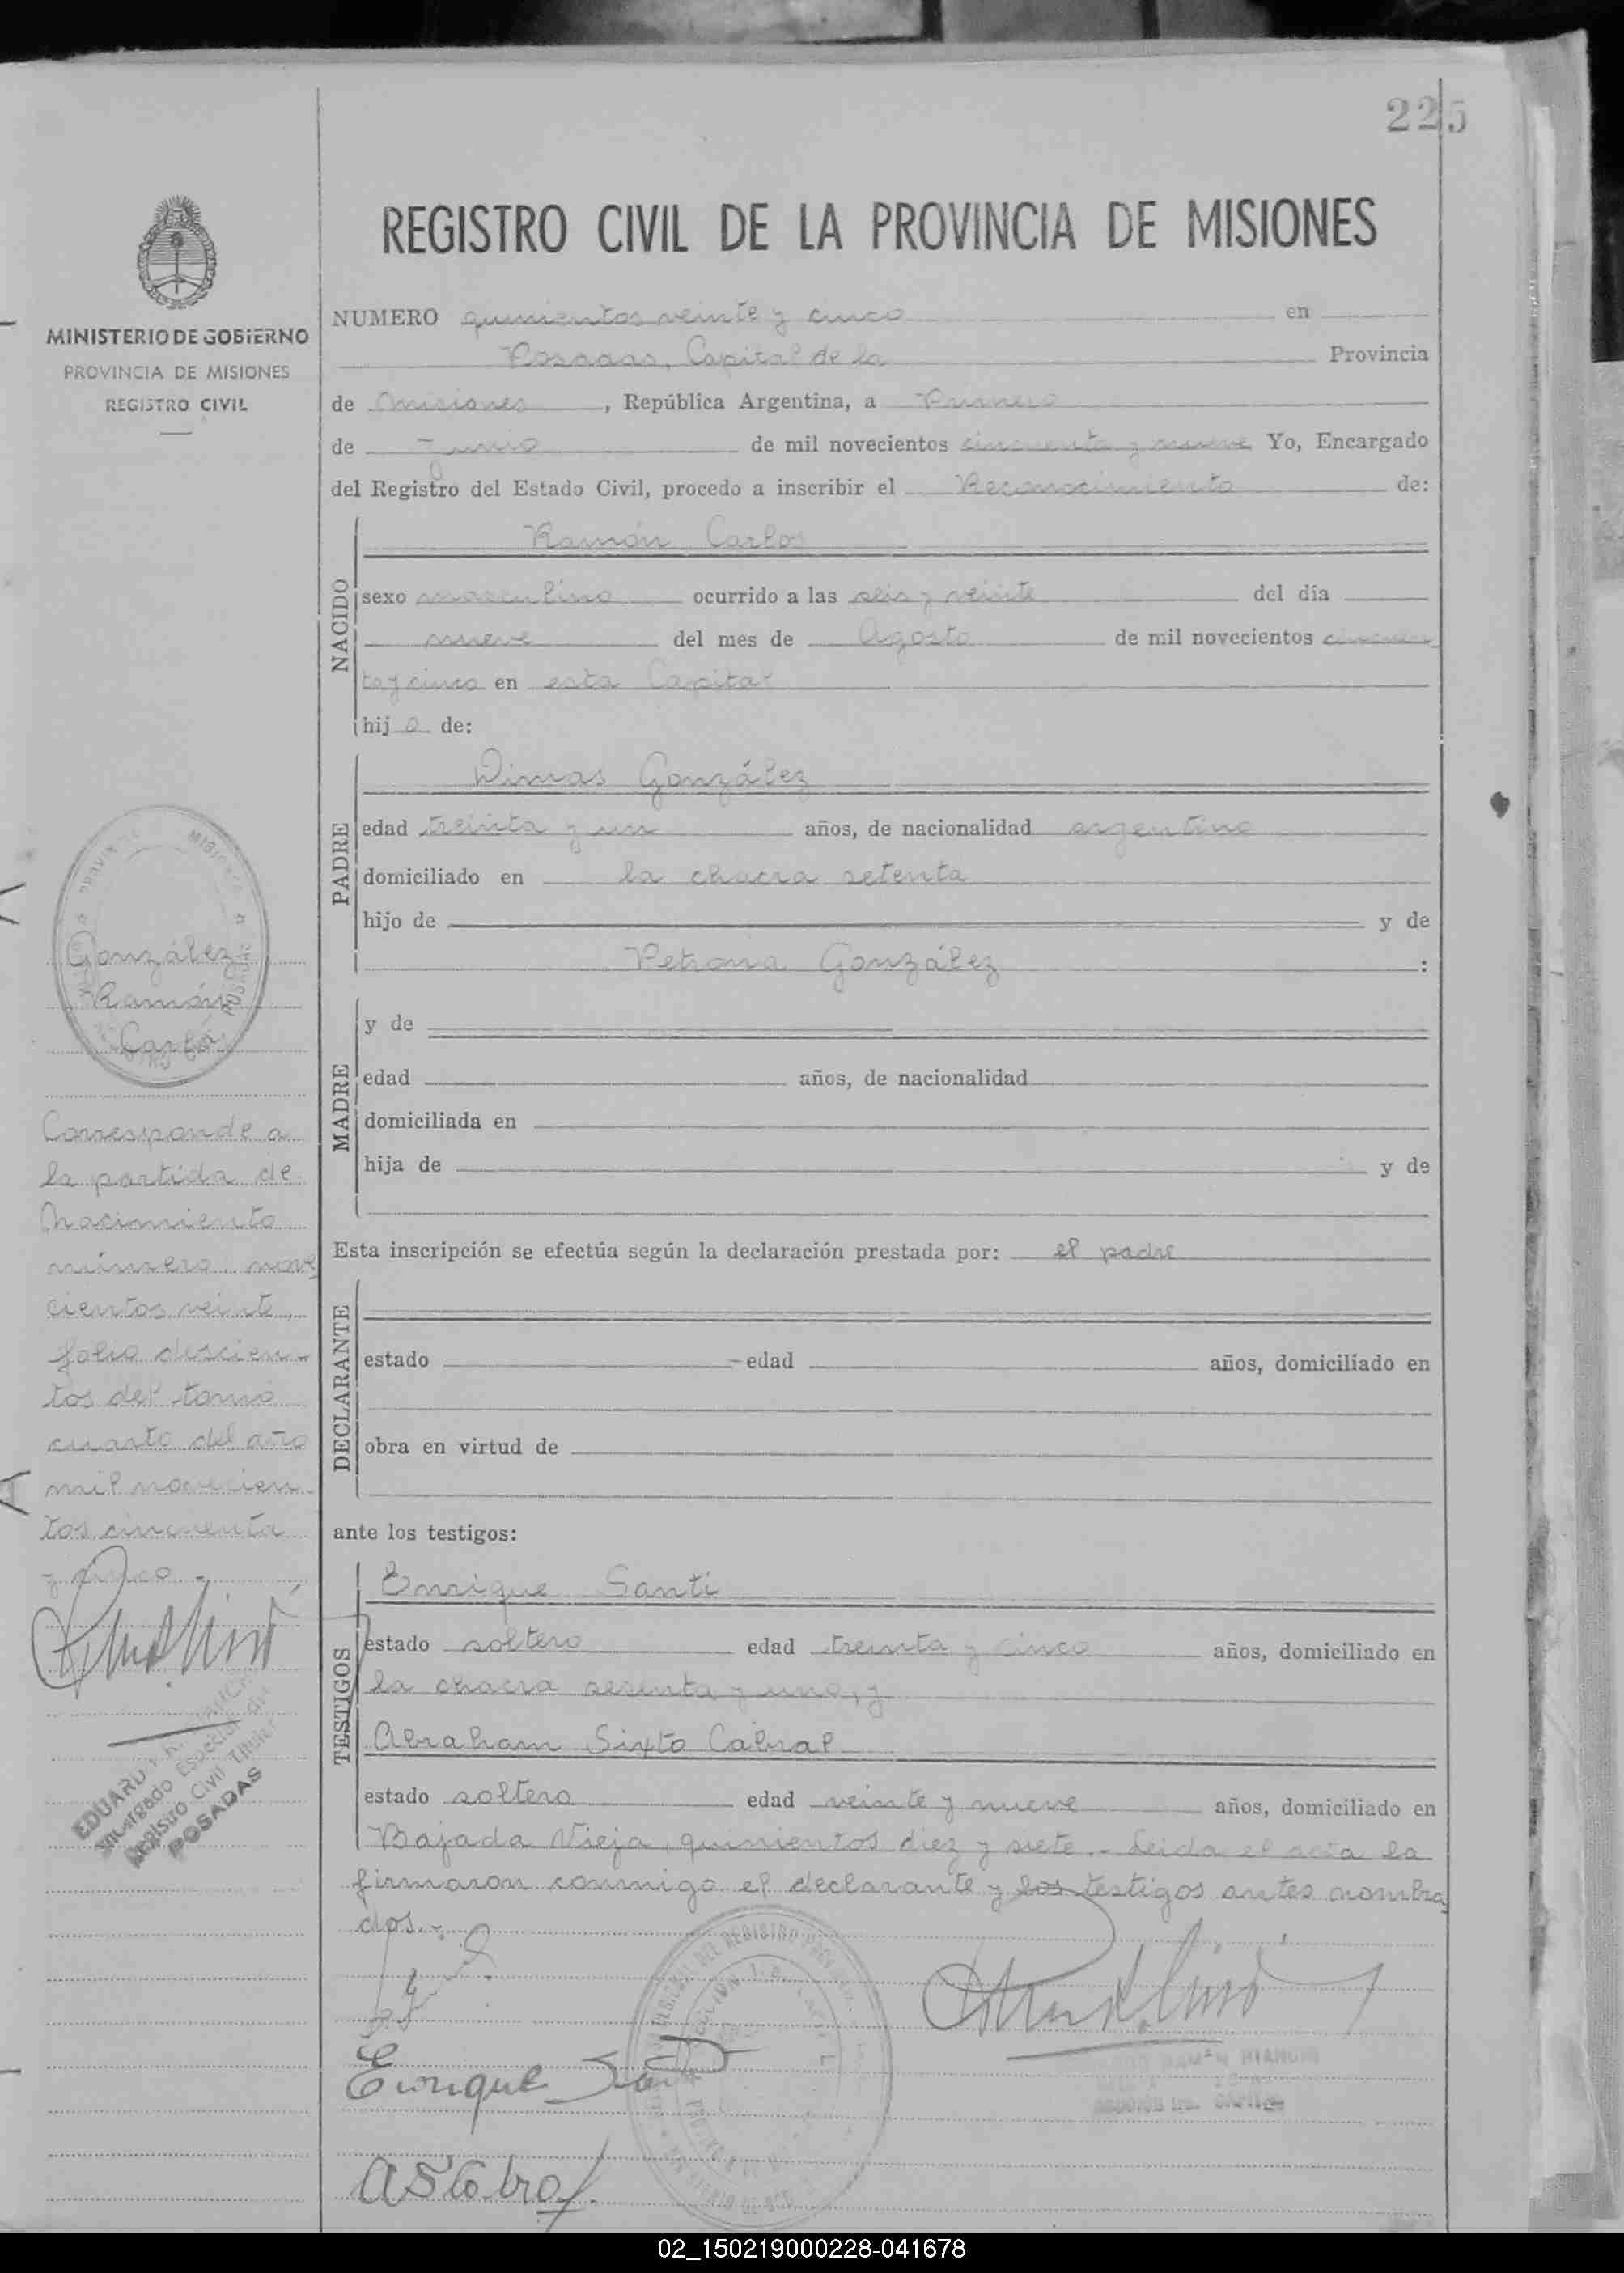 225
REGISTRO CIVIL DE LA PROVINCIA DE MISIONES
MINISTERIO DE GOBIERNO
PROVINCIA DE MISIONES
REGISTRO CIVIL
NUMERO quinientos veinte y cinco en
Posadas, Capital de la Provincia
de Misiones, República Argentina, a Primero
de Junio de mil novecientos cincuenta y nueve Yo, Encargado
del Registro del Estado Civil, procedo a inscribir el Reconocimiento de:
NACIDO
Ramón Carlos
sexo masculino ocurrido a las seis y veinte del día
nueve del mes de Agosto de mil novecientos cincuen
ta y cinco en esta Capital
hijo de:
PADRE
Dimas González
edad treinta y un años, de nacionalidad argentino
domiciliado en la chacra setenta
hijo de y de
Petrona González :
MADRE
y de
edad años, de nacionalidad
domiciliada en
hija de y de
Esta inscripción se efectúa según la declaración prestada por: el padre
DECLARANTE
estado edad años, domiciliado en
obra en virtud de
ante los testigos:
TESTIGOS
Enrique Santi
estado soltero edad treinta y cinco años, domiciliado en
la chacra y uno, y
Abraham Sixto Cabral
estado soltero edad veinte y nueve años, domiciliado en
Bajada Vieja, quinientos diez y siete.- Leida el acta la
firmaron conmigo el declarante y los testigos antes nombra
dos.-
Enrique
González
Ramón
Carlos
Corresponde a
la partida de
Nacimiento
número nove
cientos veinte
folio doscien-
tos del tomo
cuarto del año
mil novecien-
tos cincuenta
y cinco.-
Encargado Especial
Registro Civil Titular
POSADAS
02_150219000228-041678